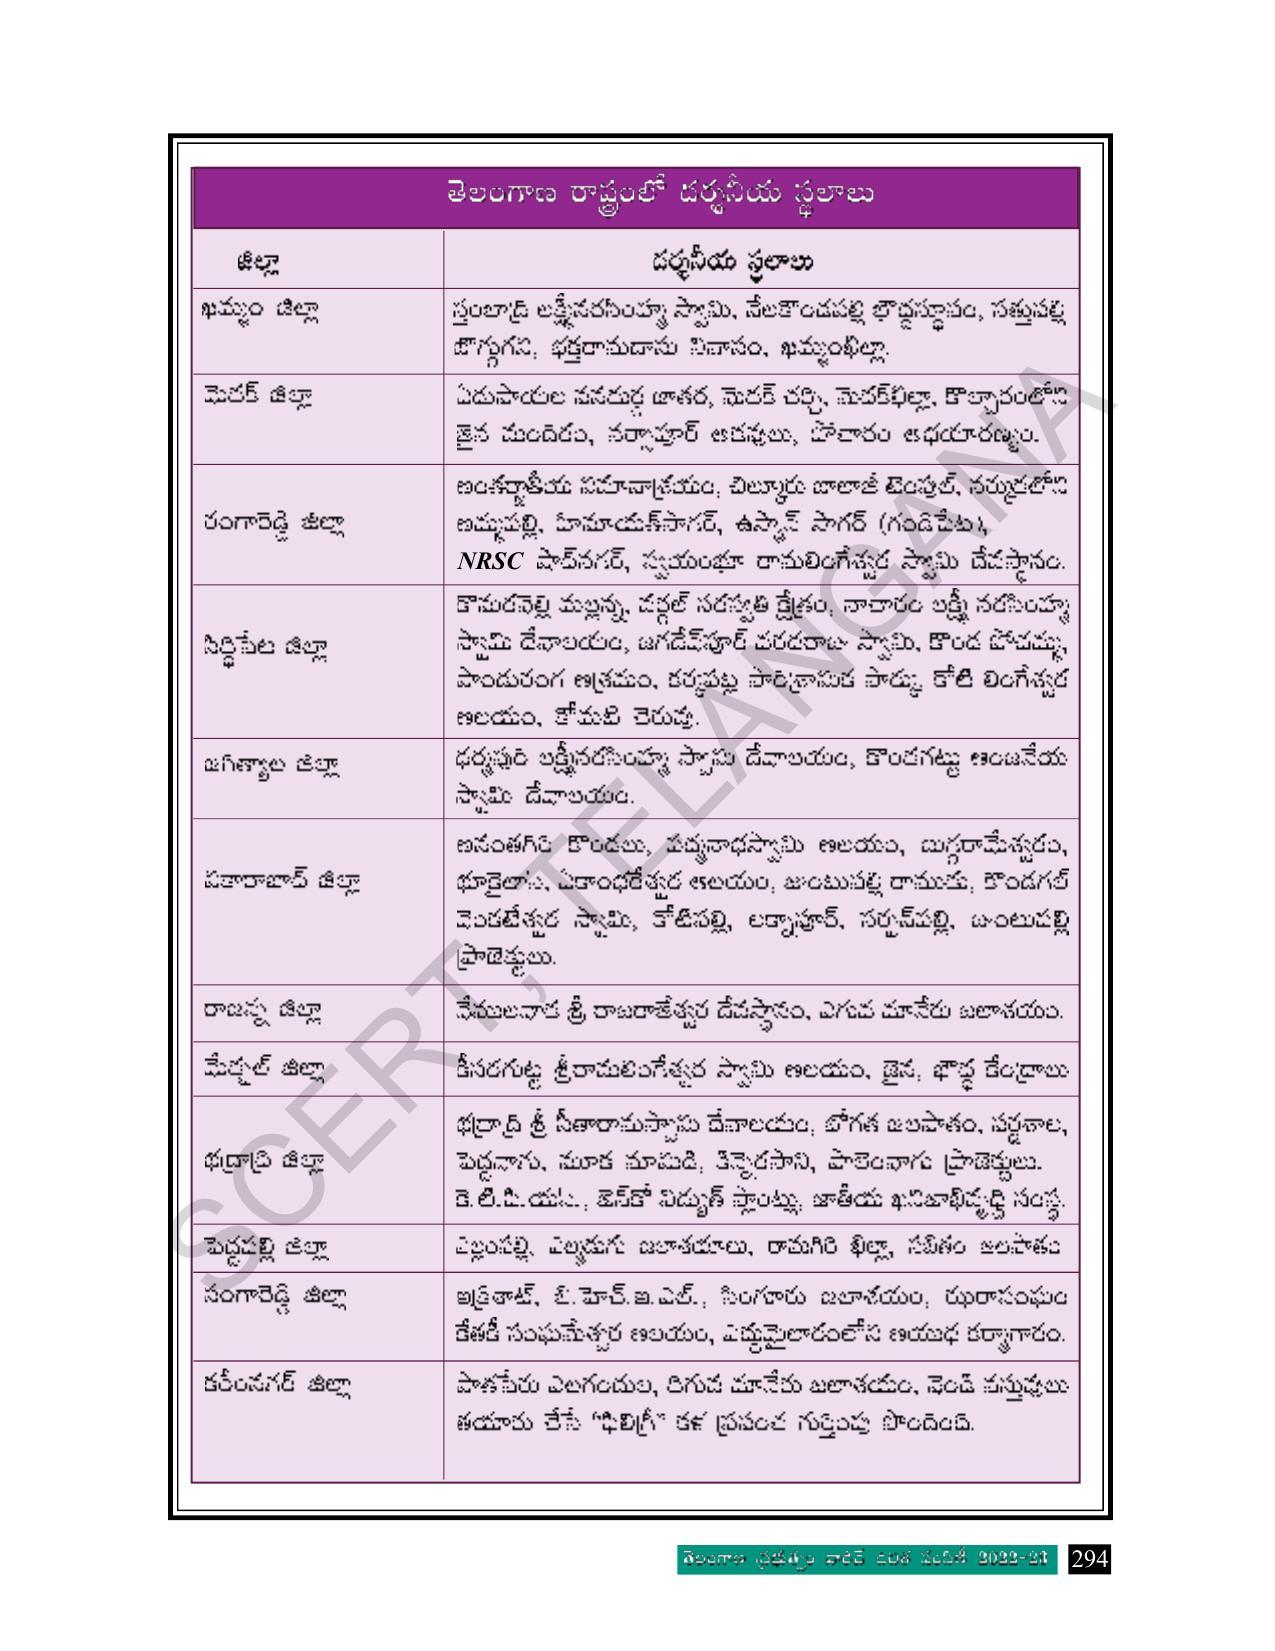 తెలంగాణ రాష్ట్రంలో దర్శనీయ స్థలాలు
జిల్లా
దర్శనీయ స్థలాలు
ఖమ్మం జిల్లా
స్తంబాద్రి లక్ష్మీనరసింహ్మ స్వామి, నేలకొండపల్లి భౌద్దస్థూపం, సత్తుపల్లి
బొగ్గుగని, భక్తరామదాసు నివాసం, ఖమ్మంఖిల్లా.
మెదక్ జిల్లా
ఏడుపాయల వనదుర్గ జాతర, మెదక్ చర్చి, మెదక్‌ఖిల్లా, కొల్చారంలోని
జైన మందిరం, నర్సాపూర్ అడవులు, పోచారం అభయారణ్యం.
రంగారెడ్డి జిల్లా
అంతర్జాతీయ విమానాశ్రయం, చిల్కూరు బాలాజీ టెంపుల్, నర్కుడలోని
అమ్మపల్లి, హిమాయత్‌సాగర్, ఉస్మాన్ సాగర్ (గండిపేట),
NRSC షాద్‌నగర్, స్వయంభూ రామలింగేశ్వర స్వామి దేవస్థానం.
సిద్ధిపేట జిల్లా
కొమరవెల్లి మల్లన్న, వర్గల్ సరస్వతి క్షేత్రం, నాచారం లక్ష్మీ నరసింహ్మ
స్వామి దేవాలయం, జగదేవ్‌పూర్ వరదరాజు స్వామి, కొండ పోచమ్మ,
పాండురంగ ఆశ్రమం, కర్కపట్ల పారిశ్రామిక పార్కు, కోటి లింగేశ్వర
ఆలయం, కోమటి చెరువు.
జగిత్యాల జిల్లా
ధర్మపురి లక్ష్మీనరసింహ్మ స్వామి దేవాలయం, కొండగట్టు ఆంజనేయ
స్వామి దేవాలయం.
వికారాబాద్ జిల్లా
అనంతగిరి కొండలు, పద్మనాభస్వామి ఆలయం, బుగ్గరామేశ్వరం,
భూకైలాస్, ఏకాంభరేశ్వర ఆలయం, జుంటుపల్లి రాముడు, కొండగల్
వెంకటేశ్వర స్వామి, కోటిపల్లి, లక్నాపూర్, సర్పన్‌పల్లి, జుంటుపల్లి
ప్రాజెక్టులు.
రాజన్న జిల్లా
వేములవాడ శ్రీ రాజరాజేశ్వర దేవస్థానం, ఎగువ మానేరు జలాశయం.
మేడ్చల్ జిల్లా
కీసరగుట్ట శ్రీరామలింగేశ్వర స్వామి ఆలయం, జైన, భౌద్ధ కేంద్రాలు
భద్రాద్రి జిల్లా
భద్రాద్రి శ్రీ సీతారామస్వామి దేవాలయం, బోగత జలపాతం, పర్ణశాల,
పెద్దవాగు, మూక మామిడి, కిన్నెరసాని, పాలెంవాగు ప్రాజెక్టులు.
కె.టి.పి.యస్., జెన్‌కో విద్యుత్ ప్లాంట్లు, జాతీయ ఖనిజాభివృద్ధి సంస్థ.
పెద్దపల్లి జిల్లా
ఎల్లంపల్లి, ఎల్మడుగు జలాశయాలు, రామగిరి ఖిల్లా, సబితం జలపాతం
సంగారెడ్డి జిల్లా
ఇక్రిశాట్, బి.హెచ్.ఇ.ఎల్., సింగూరు జలాశయం, ఝరాసంఘం
కేతకీ సంఘమేశ్వర ఆలయం, ఎద్దుమైలారంలోని ఆయుధ కర్మాగారం.
కరీంనగర్ జిల్లా
పాతపేరు ఎలగందుల, దిగువ మానేరు జలాశయం, వెండి వస్తువులు
తయారు చేసే “ఫిలిగ్రీ” కళ ప్రపంచ గుర్తింపు పొందింది.
SCERT, TELANGANA
తెలంగాణ ప్రభుత్వం వారిచే ఉచిత పంపిణీ 2022-23
294